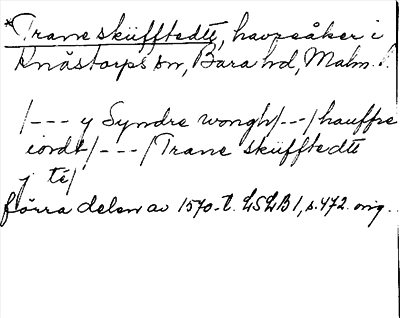 *Trane sküfftedtt, havpsåker i
Knästorps sn, Bara hd, Malm. l.
/--- y Syndre wongh/--/hauffre
iordt/---/Trane sküfftedtt
j té/
förra delen av 1570-t. LSLB 1, s. 472. orig.